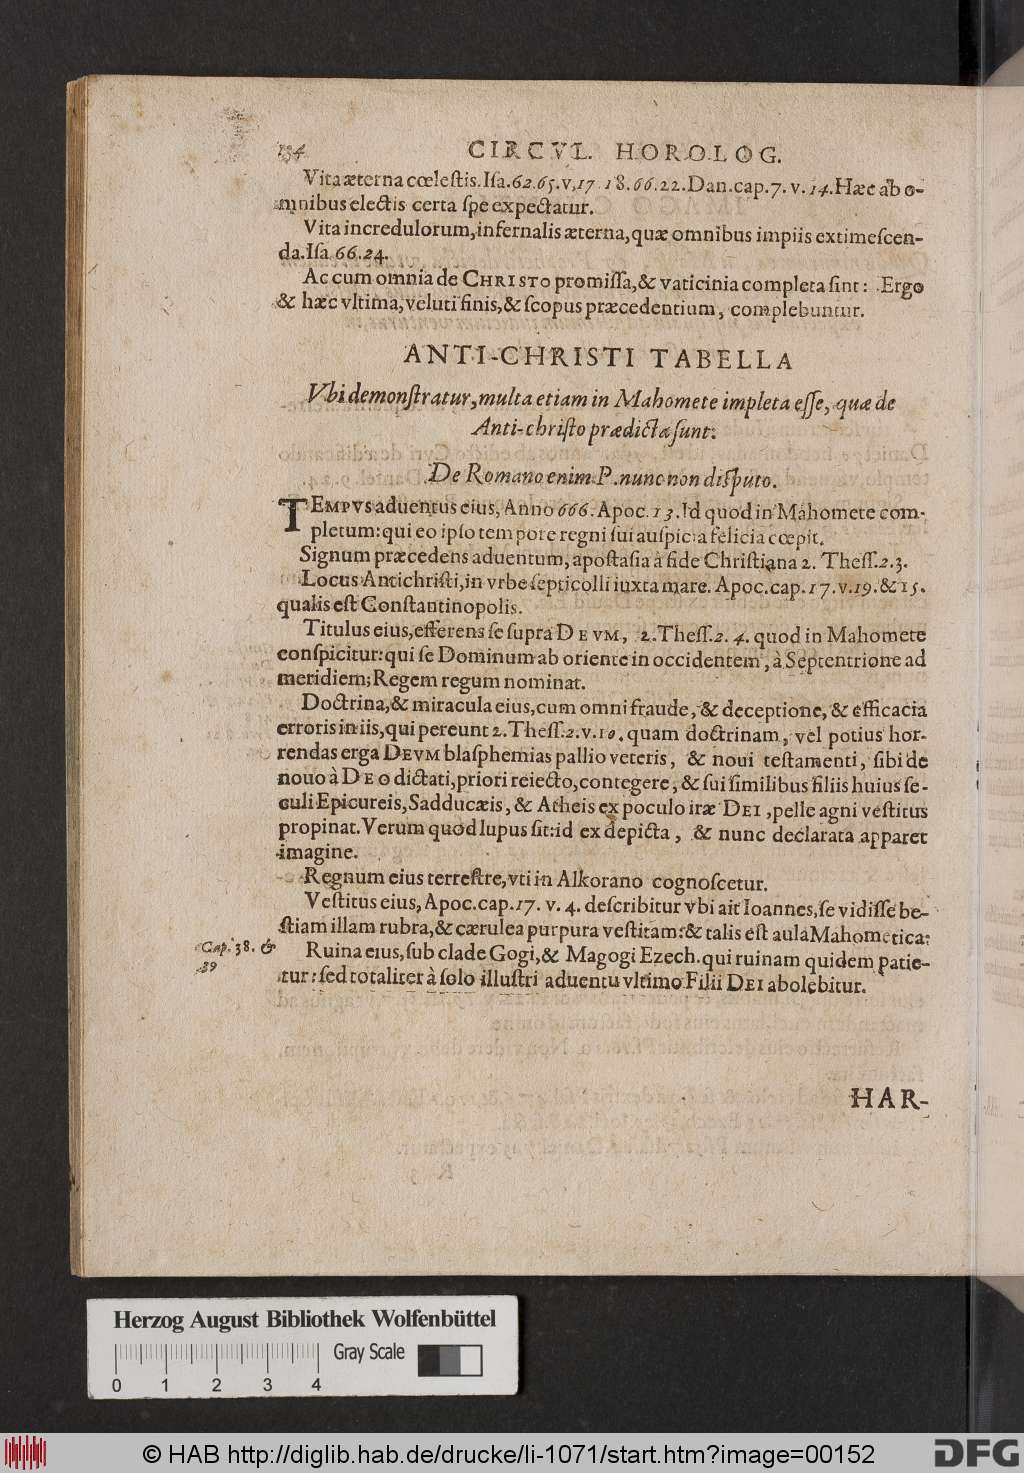 134 CIRCVL. HOROLOG.
Vita æterna cœleſtis. Iſa. 62. 65. v, 17 18. 66. 22. Dan. cap. 7. v. 14. Hæc ab o-
mnibus electis certa ſpe expectatur.
Vita incredulorum, infernalis æterna, quæ omnibus impiis extimeſcen-
da. Iſa 66. 24.
Ac cum omnia de CHRISTO promiſſa, & vaticinia completa ſint: Ergo
& hæc vltima, veluti finis, & ſcopus præcedentium, complebuntur.
ANTI-CHRISTI TABELLA
Vbi demonſtratur, multa etiam in Mahomete impleta eſſe, quæ de
Anti-chriſto prædicta ſunt:
De Romano enim P. nunc non diſputo.
TEMPVS aduentus eius, Anno 666. Apoc. 13. Id quod in Mahomete com-
pletum: qui eo ipſo tempore regni ſui auſpicia felicia cœpit.
Signum præcedens aduentum, apoſtaſia à fide Chriſtiana 2. Theſſ. 2. 3.
Locus Antichriſti, in vrbe ſepticolli iuxta mare. Apoc. cap. 17. v. 19. & 15.
qualis eſt Conſtantinopolis.
Titulus eius, efferens ſe ſupra DEVM, 2. Theſſ. 2. 4. quod in Mahomete
conſpicitur: qui ſe Dominum ab oriente in occidentem, à Septentrione ad
meridiem; Regem regum nominat.
Doctrina, & miracula eius, cum omni fraude, & deceptione, & efficacia
erroris in iis, qui pereunt 2. Theſſ. 2. v. 10. quam doctrinam, vel potius hor-
rendas erga DEVM blaſphemias pallio veteris, & noui teſtamenti, ſibi de
nouo à DEO dictati, priori reiecto, contegere, & ſui ſimilibus filiis huius ſe-
culi Epicureis, Sadducæis, & Atheis ex poculo iræ DEI, pelle agni veſtitus
propinat. Verum quod lupus ſit: id ex depicta, & nunc declarata apparet
imagine.
Regnum eius terreſtre, vti in Alkorano cognoſcetur.
Veſtitus eius, Apoc. cap. 17. v. 4. deſcribitur vbi ait Ioannes, ſe vidiſſe be-
ſtiam illam rubra, & cærulea purpura veſtitam: & talis eſt aula Mahometica:
Cap. 38. &
39
Ruina eius, ſub clade Gogi, & Magogi Ezech. qui ruinam quidem patie-
tur: ſed totaliter à ſolo illuſtri aduentu vltimo Filii DEI abolebitur.
HAR-
Herzog August Bibliothek Wolfenbüttel
Gray Scale
0 1 2 3 4
© HAB http://diglib.hab.de/drucke/li-1071/start.htm?image=00152
DFG